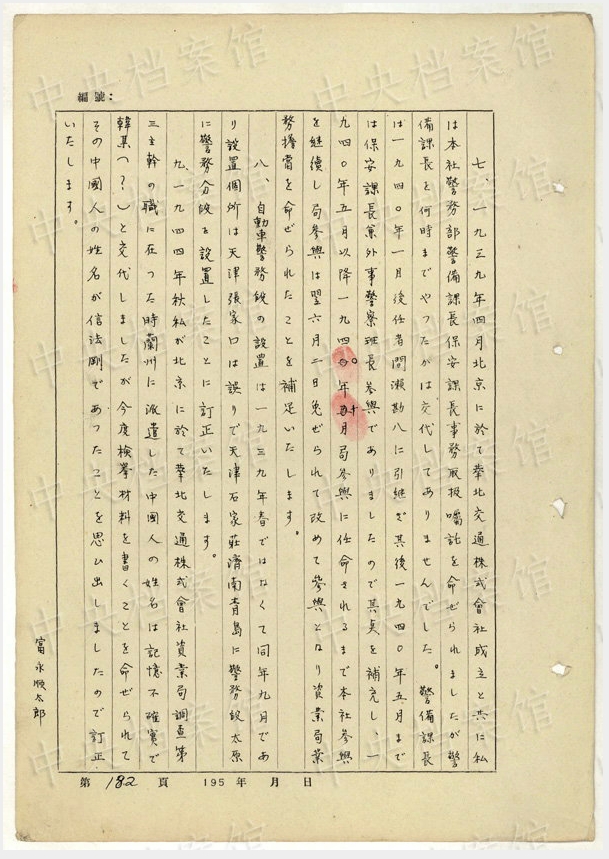 編號:
七、一九三九年四月北京に於て華北交通株式會社成立と共に私
は本社警務部警備課長保安課長事務取扱囑託を命ぜられましたが警
備課長を何時までやつたかは交代してありませんでした。警備課長
は一九四〇年一月後任者間瀨勘八に引継ぎ其後一九四〇年五月まで
は保安課長兼外事警察班長参與でありましたので其点を補充し、一
九四〇年五月以降一九四〇年十月局参與に任命されるまで本社参與
を継續し局参與は翌六月二日免ぜられて改めて参與となり資業局業
務擔當を命ぜられたことを補足いたします。
八、自動車警務段の設置は一九三九年春ではなくて同年九月であ
り設置個所は天津張家口は誤りで天津石家莊濟南青島に警務段太原
に警務分段を設置したことに訂正いたします。
九、一九四四年秋私が北京に於て華北交通株式會社資業局調査第
三主幹の職に在つた時蘭州に派遣した中國人の姓名は記憶不確實で
韓其つ(?)と交代しましたが今度検擧材料を書くことを命ぜられて
その中國人の姓名が信法剛であつたことを思ひ出しましたので訂正
いたします。
富永順太郎
第 182 頁 195 年 月 日
中央档案馆